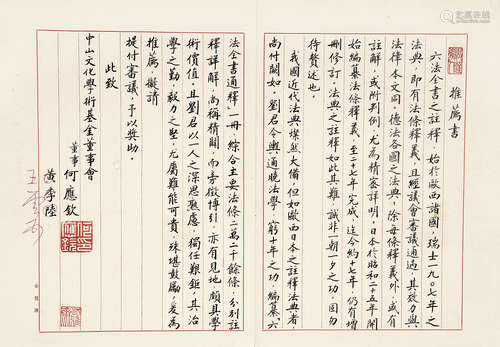 推薦書
六法全書之註釋，始於歐西諸國，瑞士一九〇七年之
法典，即有法條釋義，且經議會審議通過，其效力與
法律本文同，德法各國之法典，除每條釋義外，或有
註解，或附判例，尤為精密詳明，日本於昭和二十五年開
始編纂法條釋義，至二十七年完成，迄今約十七年，仍有增
刪修訂，法典之註釋如此其難，誠非一朝一夕之功，固勿
待贅述也。
我國近代法典燦然大備但如歐西日本之註釋法典者
尚付闕如，劉君令輿通曉法學，窮十年之功，編纂六
法全書通釋一冊，綜合主要法條一萬二千餘條，分別註
釋詳解，尚稱精闢，而旁徵博引，亦有見地，頗具學
術價值，且劉君以一人之深思熟慮，獨任艱鉅，其治
學之勤，毅力之堅，尤屬難能可貴，殊堪鼓勵，爰為
推薦，擬請
提付審議，予以獎助。
此致
中山文化學術基金董事會
董事 何應欽
黃季陸
王雲五